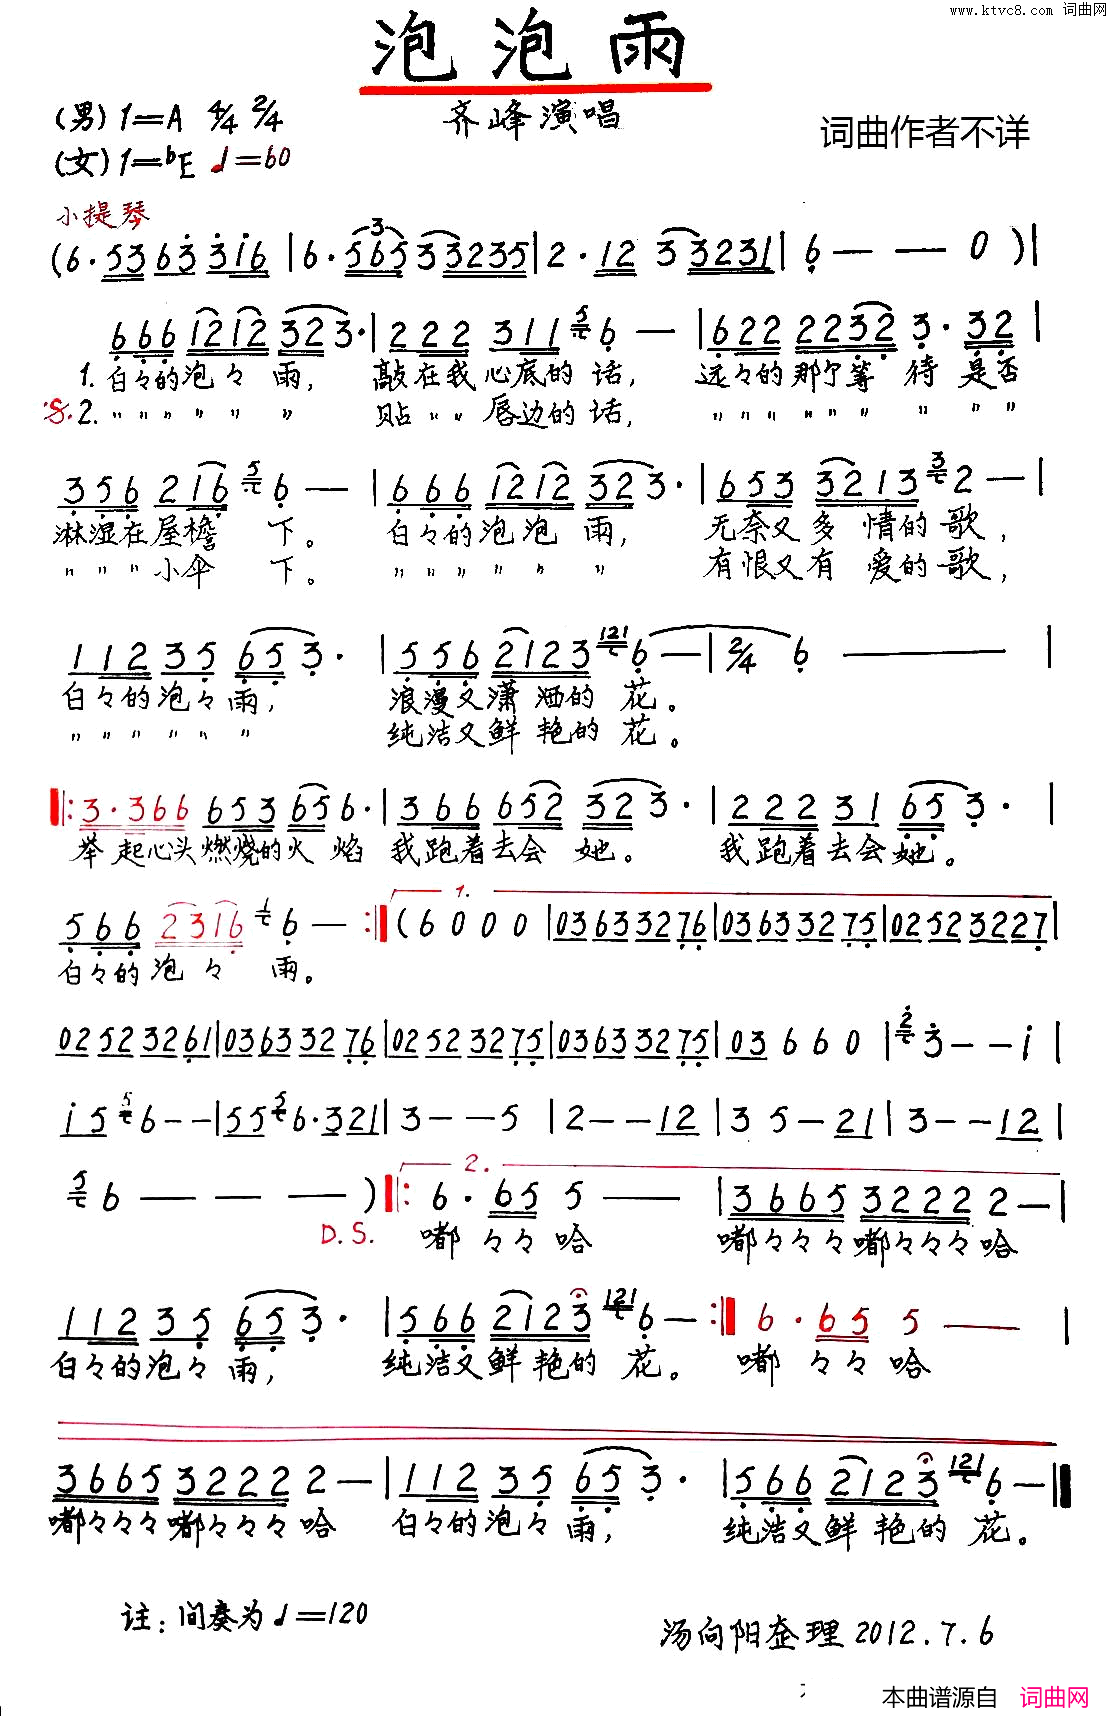 www.ktvc8.com 词曲网
泡泡雨
(男) 1=A 4/4 2/4
齐峰演唱
词曲作者不详
(女) 1=bE ♩=60
小提琴
(6·53 63 3i6 | 6·565 33235 | 2·12 33231 | 6 — — 0 ) |
666 1212 323· | 222 311 5 6 — | 622 2232 3·32 |
1. 白々的泡々雨, 敲在我心底的话, 远々的那个等待是否
2. 〃〃〃〃〃〃 贴〃〃唇边的话, 〃〃〃〃〃〃〃〃〃
356 216 5 6 — | 666 1212 323· | 653 3213 3 2 — |
淋湿在屋檐下。 白々的泡泡雨, 无奈又多情的歌,
〃〃〃小伞下。 〃〃〃〃〃〃 有恨又有爱的歌,
112 35 653· | 556 2123 121 6 — | 2/4 6 — |
白々的泡々雨, 浪漫又潇洒的花。
〃〃〃〃〃〃 纯洁又鲜艳的花。
|: 3·366 653 656· | 366 652 323· | 222 31 653· |
举起心头燃烧的火焰 我跑着去会她。 我跑着去会她。
1.
566 2316 1 6 — :| (6 0 0 0 | 03633276 | 03633275 | 02523227 |
白々的泡々雨。
02523261 | 03633276 | 02523275 | 03633275 | 03 6 6 0 | 2 3 — — i |
i5 5 6 — — | 55 5 6·321 | 3 — — 5 | 2 — — 12 | 3 5 — 21 | 3 — — 12 |
2.
5 6 — — — ) |: 6·65 5 — | 3665 3222 2 — |
D.S. 嘟々々哈 嘟々々々嘟々々々哈
112 35 653· | 566 2123 121 6 — :| 6·65 5 — |
白々的泡々雨, 纯洁又鲜艳的花。 嘟々々哈
3665 3222 2 — | 112 35 653· | 566 2123 121 6 — |
嘟々々々嘟々々々哈 白々的泡々雨, 纯洁又鲜艳的花。
注: 间奏为♩=120
汤向阳整理 2012.7.6
本曲谱源自 词曲网